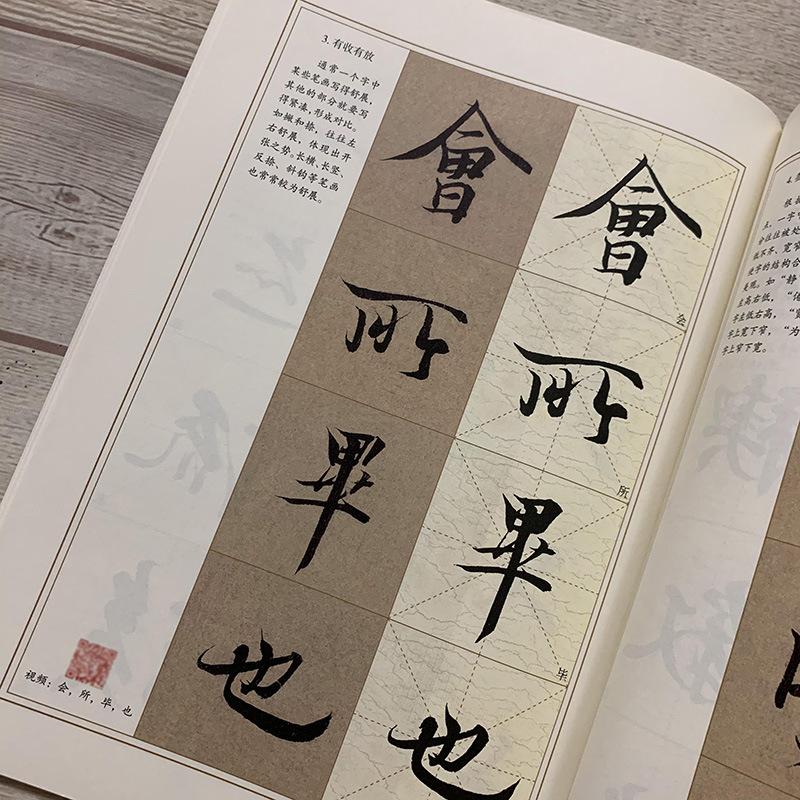 3. 有收有放
通常一个字中
某些笔画写得舒展,
其他的部分就要写
得紧凑,形成对比。
如撇和捺,往往左
右舒展,体现出开
张之势。长横、长竖、
反捺、斜钩等笔画
也常常较为舒展。
會
會
会
所
所
所
畢
畢
毕
也
也
视频:会,所,毕,也
4.
根
点,一字
会往往被处
低不齐、宽窄
使字的结构合
美观。如“静
左高右低,
字左低右高,
字上宽下窄,“为
字上窄下宽。